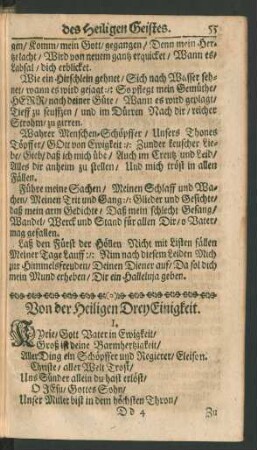 des Heiligen Geistes. 55
gen/ Komm/ mein Gott/ gegangen/ Denn mein Her-
tze lacht/ Wird von neuem gantz erquicket/ Wann es/
Labsal/ dich erblicket.
Wie ein Hirschlein gehnet/ Sich nach Wasser seh-
net/ wann es wird gejagt :/: So pflegt mein Gemüthe/
HERR/ nach deiner Güte/ Wann es wird geplagt/
Tieff zu seuffzen/ und im Dürren Nach dir/ reicher
Strohm/ zu girren.
Wahrer Menschen-Schöpffer/ Unsers Thones
Töpffer/ GOtt von Ewigkeit :/: Zunder keuscher Lie-
be/ Gieb/ daß ich mich übe/ Auch im Creutz und Leid/
Alles dir anheim zu stellen/ Und mich tröst in allen
Fällen.
Führe meine Sachen/ Meinen Schlaff und Wa-
chen/ Meinen Trit und Gang :/: Glieder und Gesichte/
daß mein arm Gedichte/ Daß mein schlecht Gesang/
Wandel/ Werck und Stand für allen Dir/ o Vater/
mag gefallen.
Laß den Fürst der Höllen Nicht mit Listen fällen
Meiner Tage Lauff :/: Nim nach diesem Leiden Mich
zur Himmelsfreuden/ Deinen Diener auf/ Da sol dich
mein Mund erheben/ Dir ein Halleluja geben.
Von der Heiligen DreyEinigkeit.
I.
KYrie/ Gott Vater in Ewigkeit/
Groß ist deine Barmhertzigkeit/
Aller Ding ein Schöpffer und Regierer/ Eleison.
Christe/ aller Welt Trost/
Uns Sünder allein du hast erlöst/
O JEsu/ Gottes Sohn/
Unser Mitler bist in dem höchsten Thron/
Dd 4 Zu